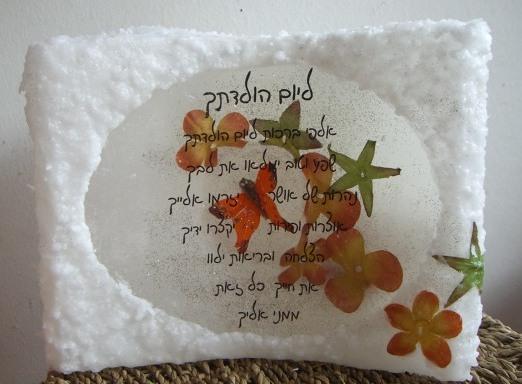 ליום הולדתך
אלפי ברכות ליום הולדתך
שפע וטוב ימלאו את לבך
נהרות של אושר יזרמו אלייך
אוצרות ופדות יקצרו ידיך
הצלחה ובריאות ילוו
את חייך כל זאת
ממני אליך